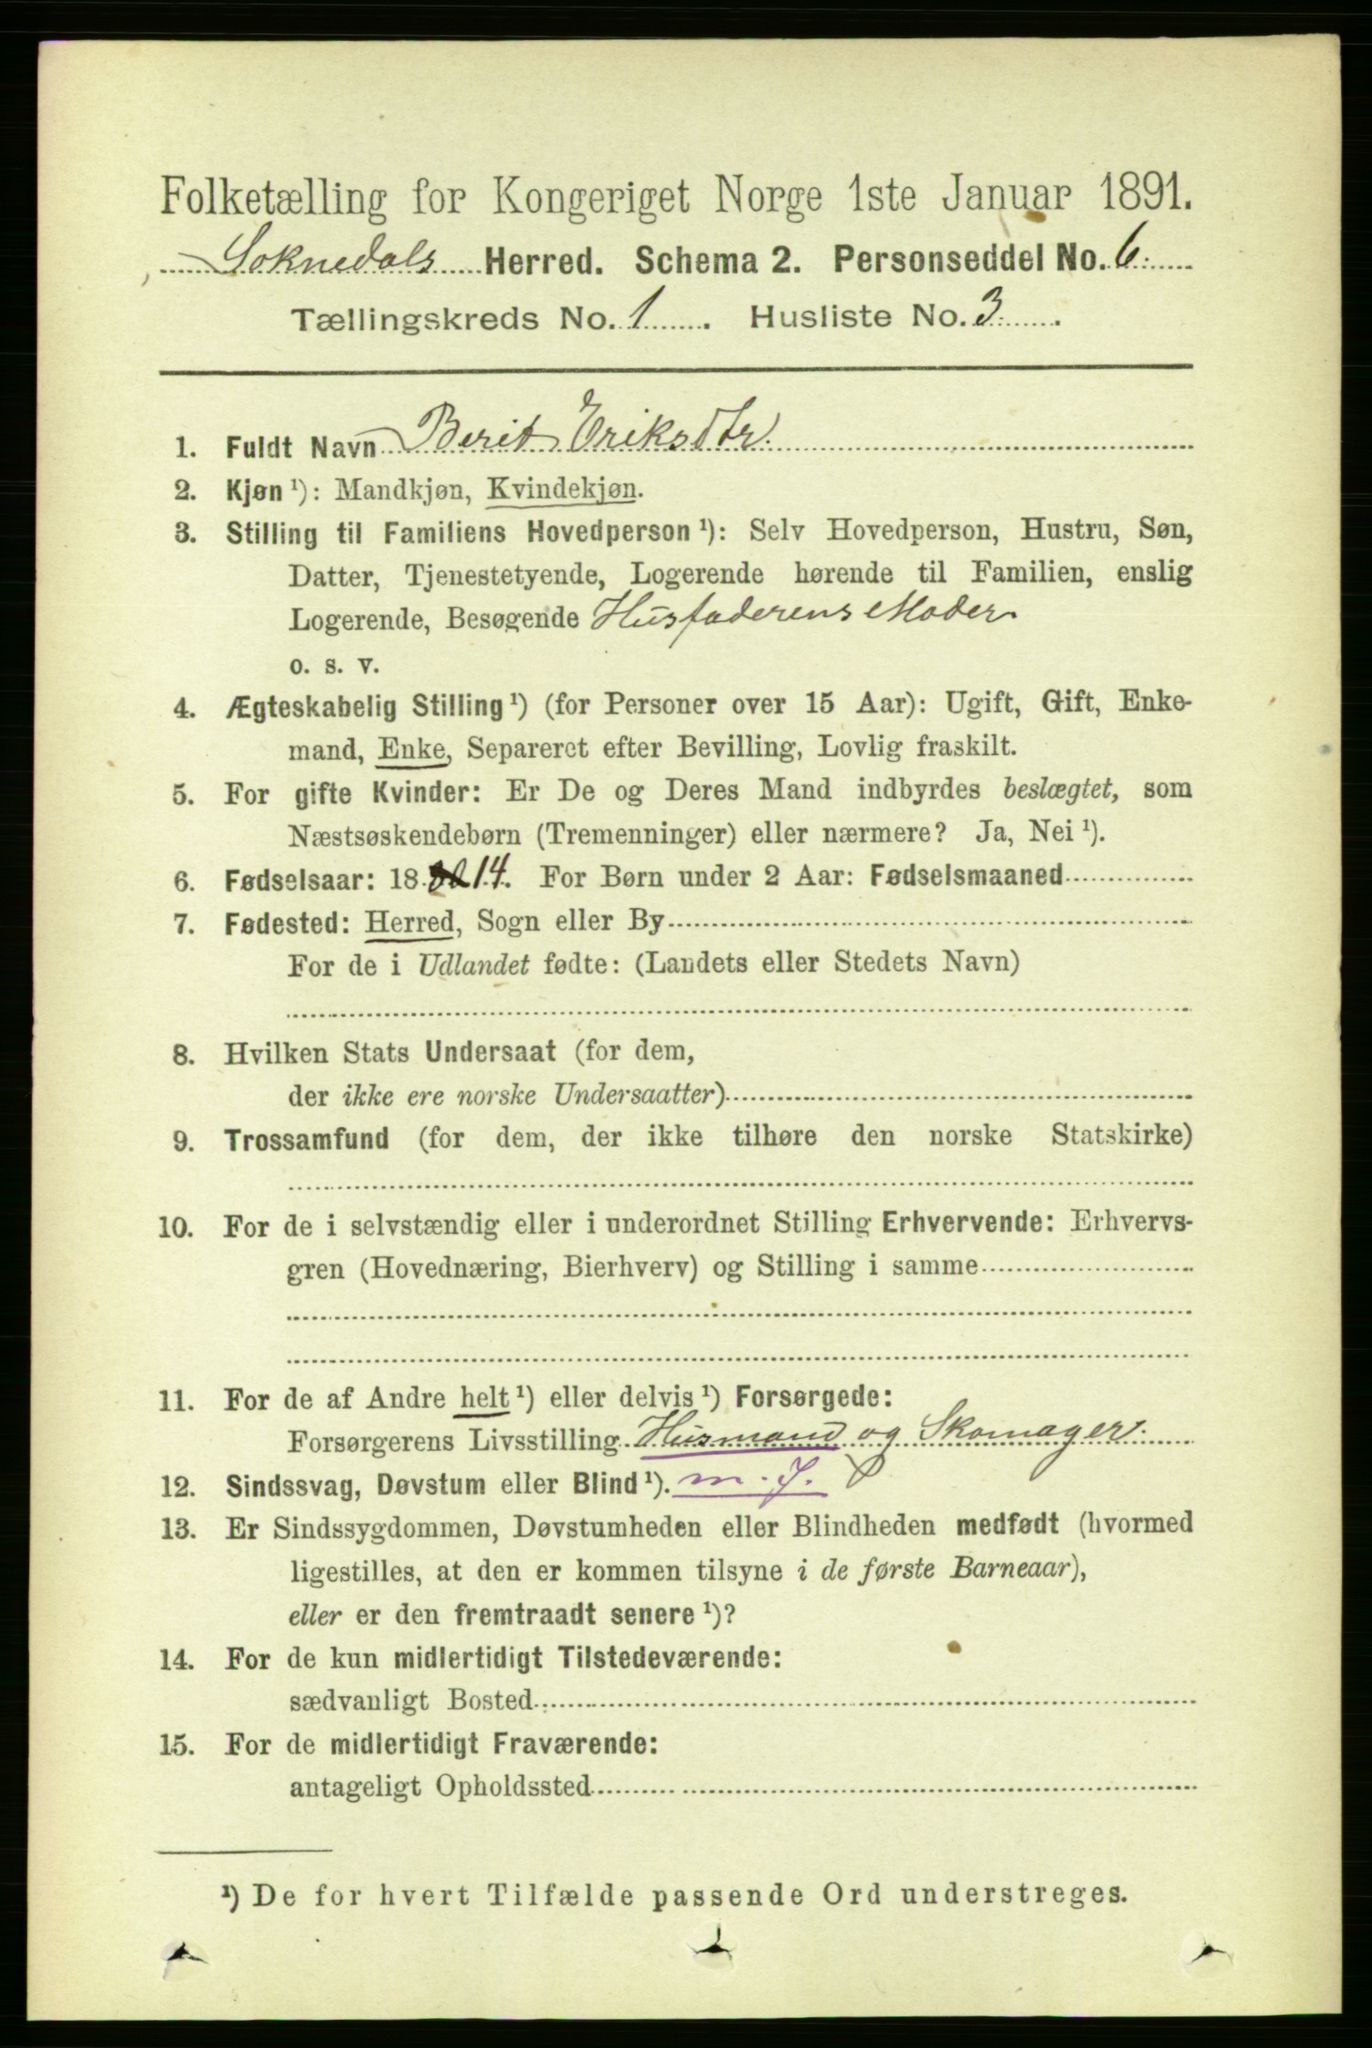 Folketælling for Kongeriget Norge 1ste Januar 1891.
Soknedals Herred. Schema 2. Personseddel No. 6.
Tællingskreds No. 1. Husliste No. 3.
1. Fuldt Navn Berit Eriksdtr.
2. Kjøn ¹): Mandkjøn, Kvindekjøn.
3. Stilling til Familiens Hovedperson ¹): Selv Hovedperson, Hustru, Søn,
Datter, Tjenestetyende, Logerende hørende til Familien, enslig
Logerende, Besøgende Husfaderens Moder
o. s. v.
4. Ægteskabelig Stilling ¹) (for Personer over 15 Aar): Ugift, Gift, Enke-
mand, Enke, Separeret efter Bevilling, Lovlig fraskilt.
5. For gifte Kvinder: Er De og Deres Mand indbyrdes beslægtet, som
Næstsøskendebørn (Tremenninger) eller nærmere? Ja, Nei ¹).
6. Fødselsaar: 18 14. For Børn under 2 Aar: Fødselsmaaned
7. Fødested: Herred, Sogn eller By
For de i Udlandet fødte: (Landets eller Stedets Navn)
8. Hvilken Stats Undersaat (for dem,
der ikke ere norske Undersaatter)
9. Trossamfund (for dem, der ikke tilhøre den norske Statskirke)
10. For de i selvstændig eller i underordnet Stilling Erhvervende: Erhvervs-
gren (Hovednæring, Bierhverv) og Stilling i samme
11. For de af Andre helt ¹) eller delvis ¹) Forsørgede:
Forsørgerens Livsstilling Husmand og Skomager.
12. Sindssvag, Døvstum eller Blind ¹). m. J.
13. Er Sindssygdommen, Døvstumheden eller Blindheden medfødt (hvormed
ligestilles, at den er kommen tilsyne i de første Barneaar),
eller er den fremtraadt senere ¹)?
14. For de kun midlertidigt Tilstedeværende:
sædvanligt Bosted
15. For de midlertidigt Fraværende:
antageligt Opholdssted
¹) De for hvert Tilfælde passende Ord understreges.